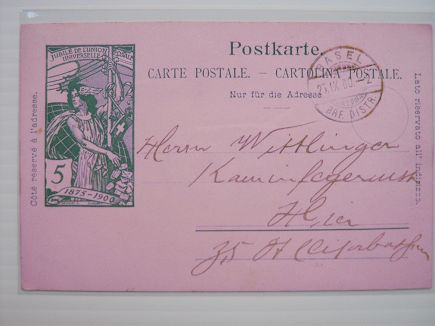 JUBILÉ DE L'UNION
UNIVERSELLE POSTALE
5
1875-1900
Postkarte.
CARTE POSTALE. – CARTOLINA POSTALE.
Nur für die Adresse
BASEL
BRF. DISTR.
Côté réservé à l'adresse.
Lato riservato all' indirizzo.
Herrn Wittlinger
Hier
35